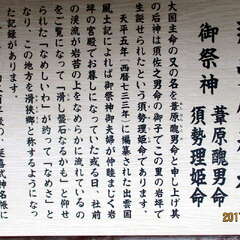 御祭神
葦原醜男命
須勢理姫命
大国主命の又の名を葦原醜男命と申し上げ其
の后神は須佐之男命の御子でこの里の岩坪で
生誕せられたという須勢理姫命であります。
天平五年(西暦七三三年)に編纂された出雲国
風土記によれば御祭神御夫婦が仲睦まじく岩
坪の宮殿でお暮しになっていた或る日、社前
の渓流が岩苔の上をなめらかに流れているの
をご覧になって「滑し磐石なるかも」と仰せ
られた「なめしいわ」が約って「なめさ」と
なり、この地方を滑狭郷と称するようになっ
た記録があります。